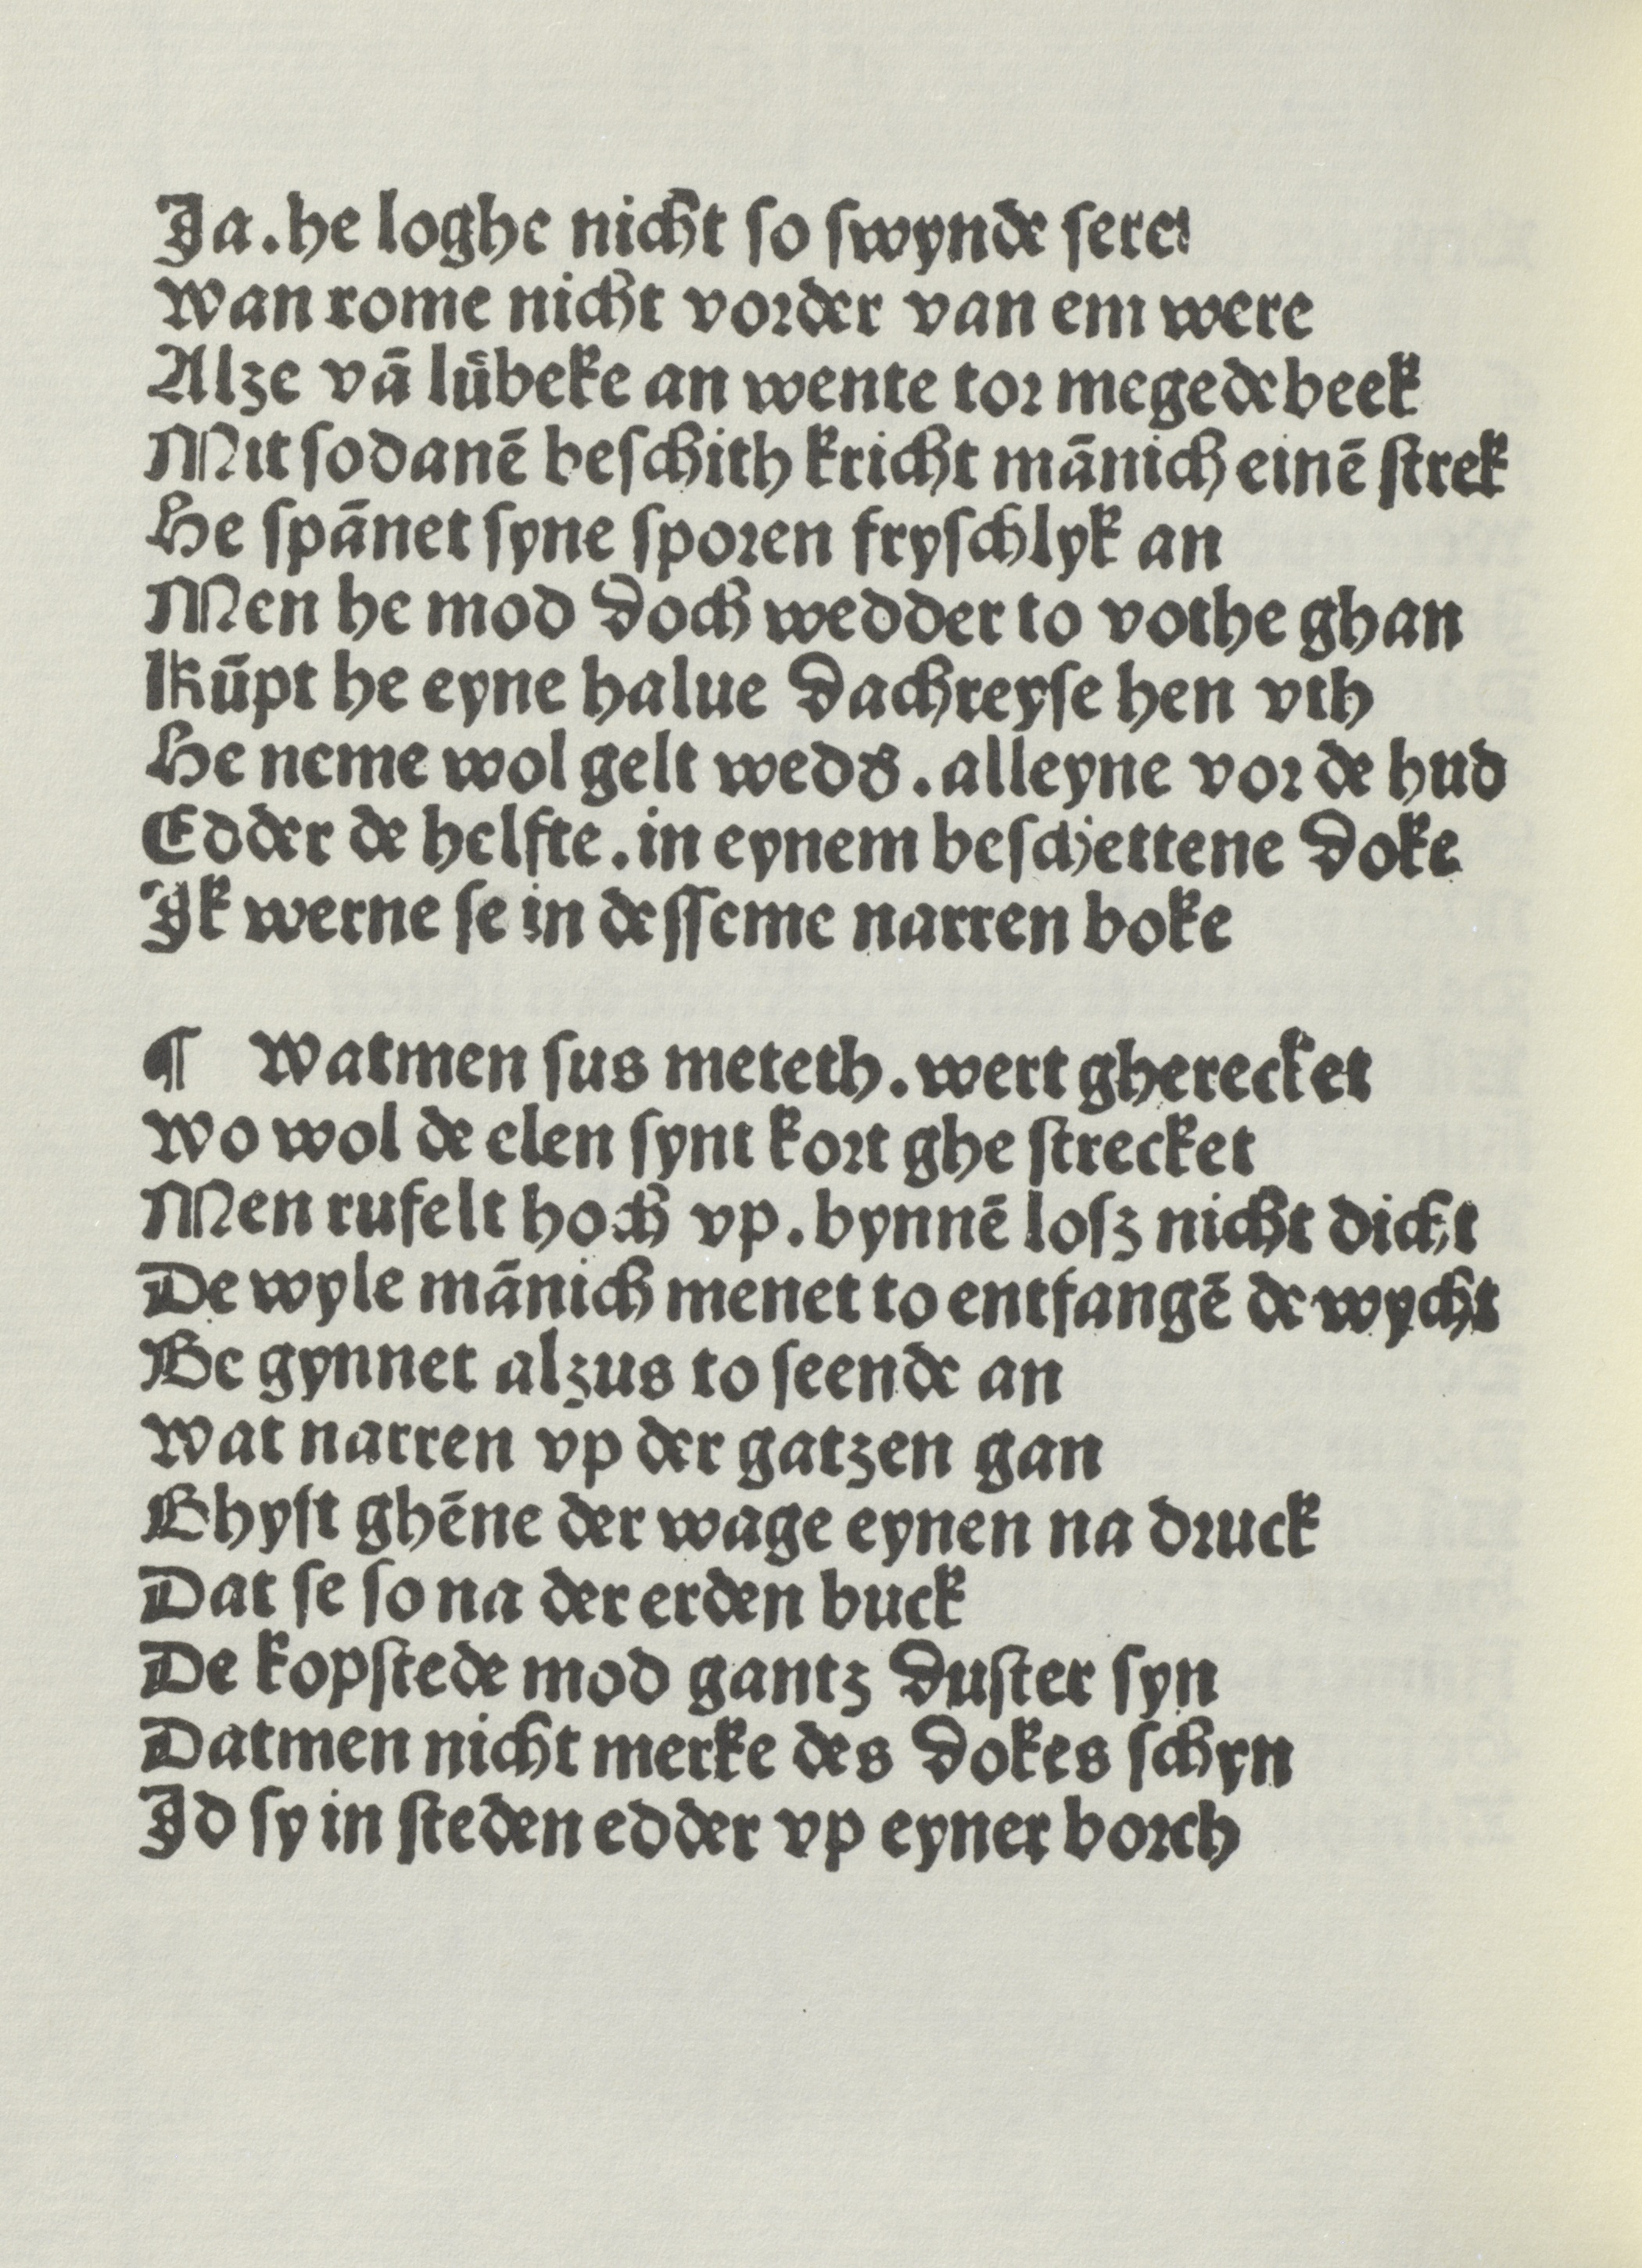 Ja. he loghe nicht so swynde sere
Wan rome nicht vorder van em were
Alze vā lübeke an wente tor megedebeek
Mit sodanē beschith kricht mānich einē strek
He spānet syne sporen fryschlyk an
Men he mod doch wedder to vothe ghan
Kūpt he eyne halue dachreyse hen vth
He neme wol gelt wedd. alleyne vor de hud
Edder de helfte. in eynem beschettene doke
Jk werne se in desseme narren boke
¶ Watmen sus meteth. wert gherecket
Wo wol de elen synt kort ghe strecket
Men rufelt hoch vp. bynnē losz nicht dicht
De wyle mānich menet to entfangē de wycht
Be gynnet alzus to seende an
Wat narren vp der gatzen gan
Ghyft ghēne der wage eynen na druck
Dat se so na der erden buck
De kopstede mod gantz duster syn
Datmen nicht merke des dokes schyn
Jd sy in steden edder vp eyner borch